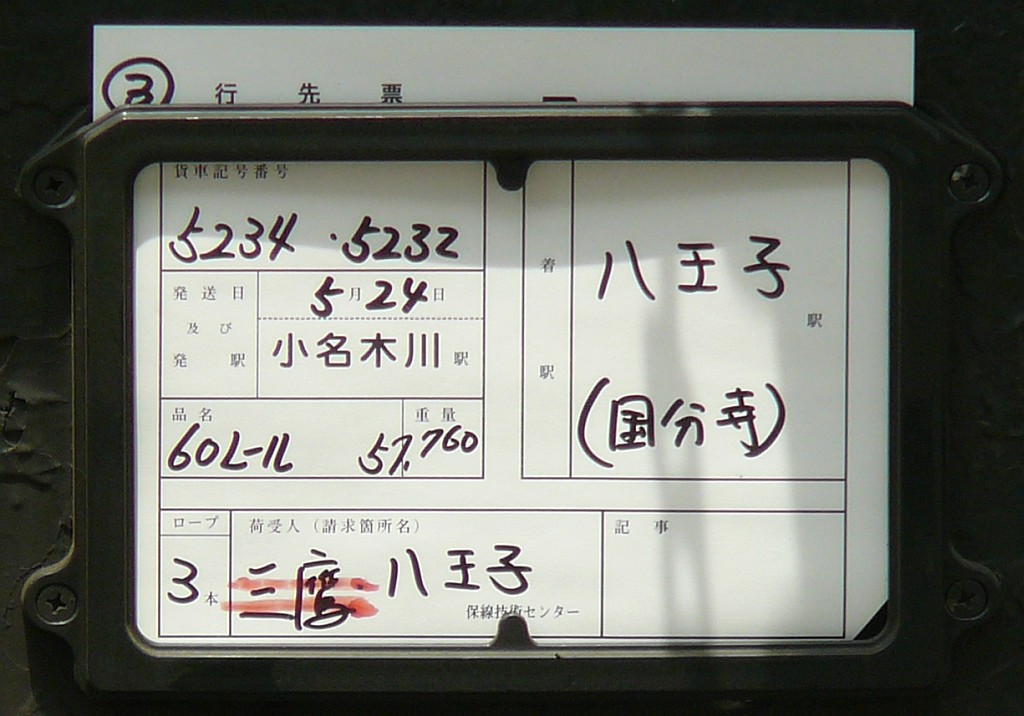 ③ 行先票
貨車記号番号
5234・5232
発送日及び発駅
5月24日
小名木川駅
品名
60レール
重量
57,760
着駅
八王子駅
(国分寺)
ロープ
3本
荷受人(請求箇所名)
三鷹 八王子
保線技術センター
記事